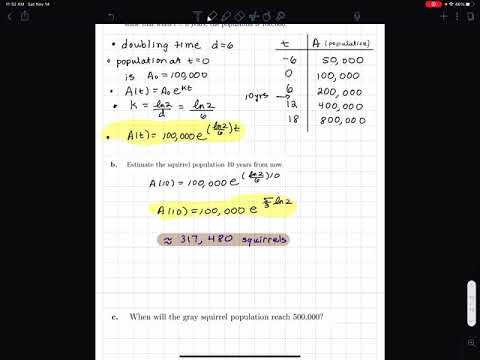 11:52 AM Sat Nov 14
66%
• doubling time d=6
• population at t=0
is A₀=100,000
• A(t)=A₀e^(kt)
• k = ln2/d = ln2/6
• A(t)=100,000e^((ln2/6)t)
t A (population)
-6 50,000
0 100,000
6 200,000
10yrs →
12 400,000
18 800,000
b. Estimate the squirrel population 10 years from now
A(10)=100,000e^((ln2/6)10)
A(10)=100,000e^(5/3 ln2)
≈ 317,480 squirrels
c. When will the gray squirrel population reach 500,000?